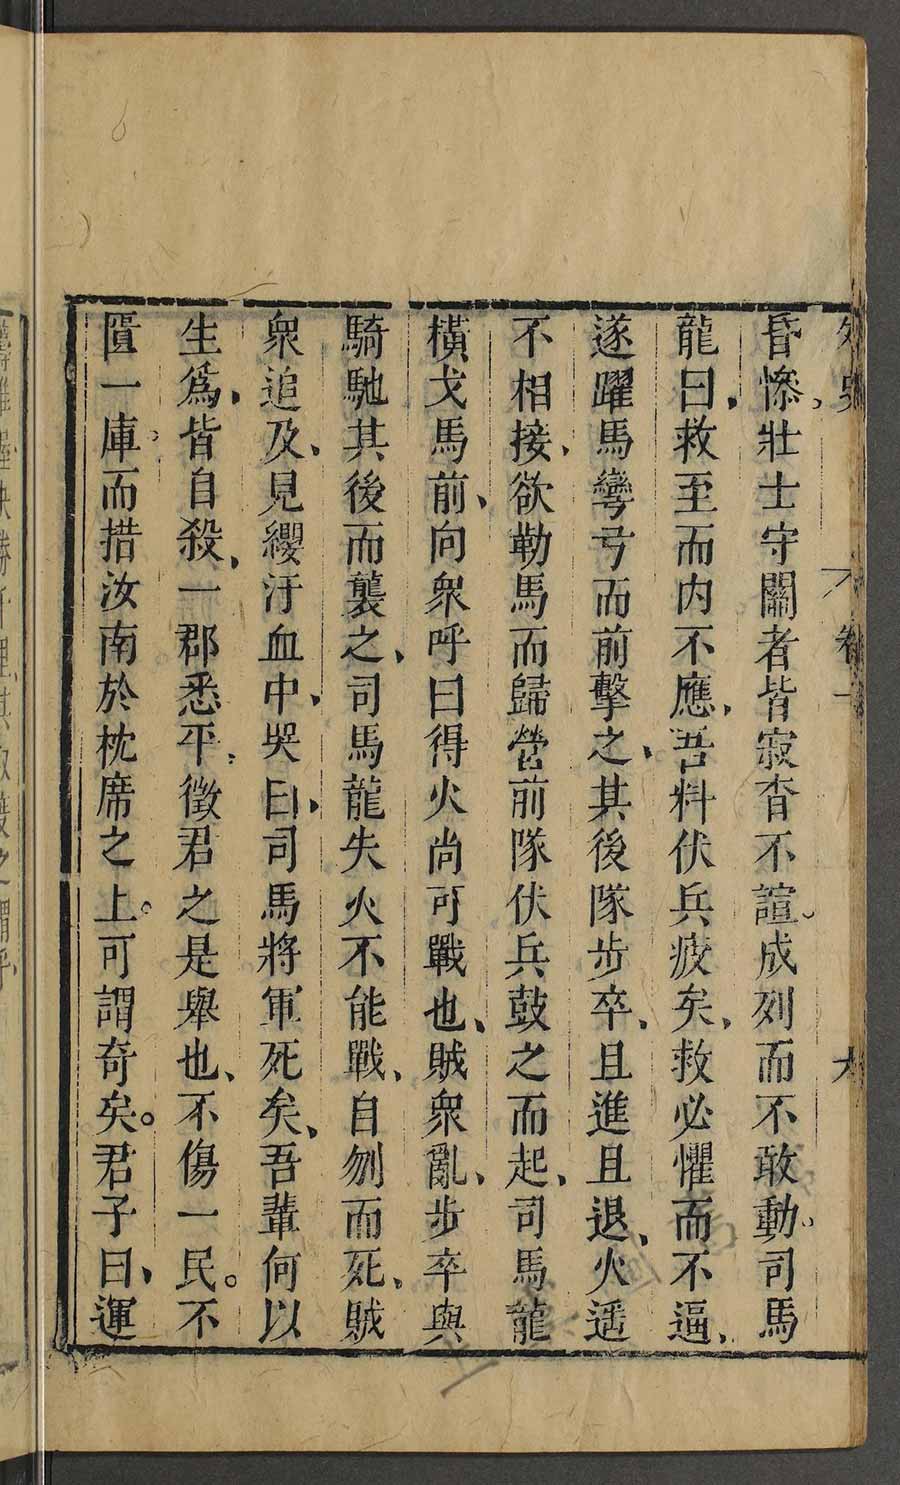 昏慘、壯士守關者皆寂杳不諠。成列而不敢動、司馬
龍曰、救至而内不應、吾料伏兵疲矣、救必懼而不逼、
遂躍馬彎弓而前擊之、其後隊步卒、且進且退、火遥
不相接、欲勒馬而歸營前隊伏兵鼓之而起、司馬龍
橫戈馬前、向衆呼曰得火尚可戰也、賊衆亂、步卒與
騎馳其後而襲之、司馬龍失火不能戰、自刎而死、賊
衆追及、見纓汙血中、哭曰、司馬將軍死矣、吾輩何以
生爲、皆自殺、一郡悉平、徵君之是舉也、不傷一民。不
匱一庫、而措汝南於枕席之上。可謂奇矣。君子曰、運
卷一